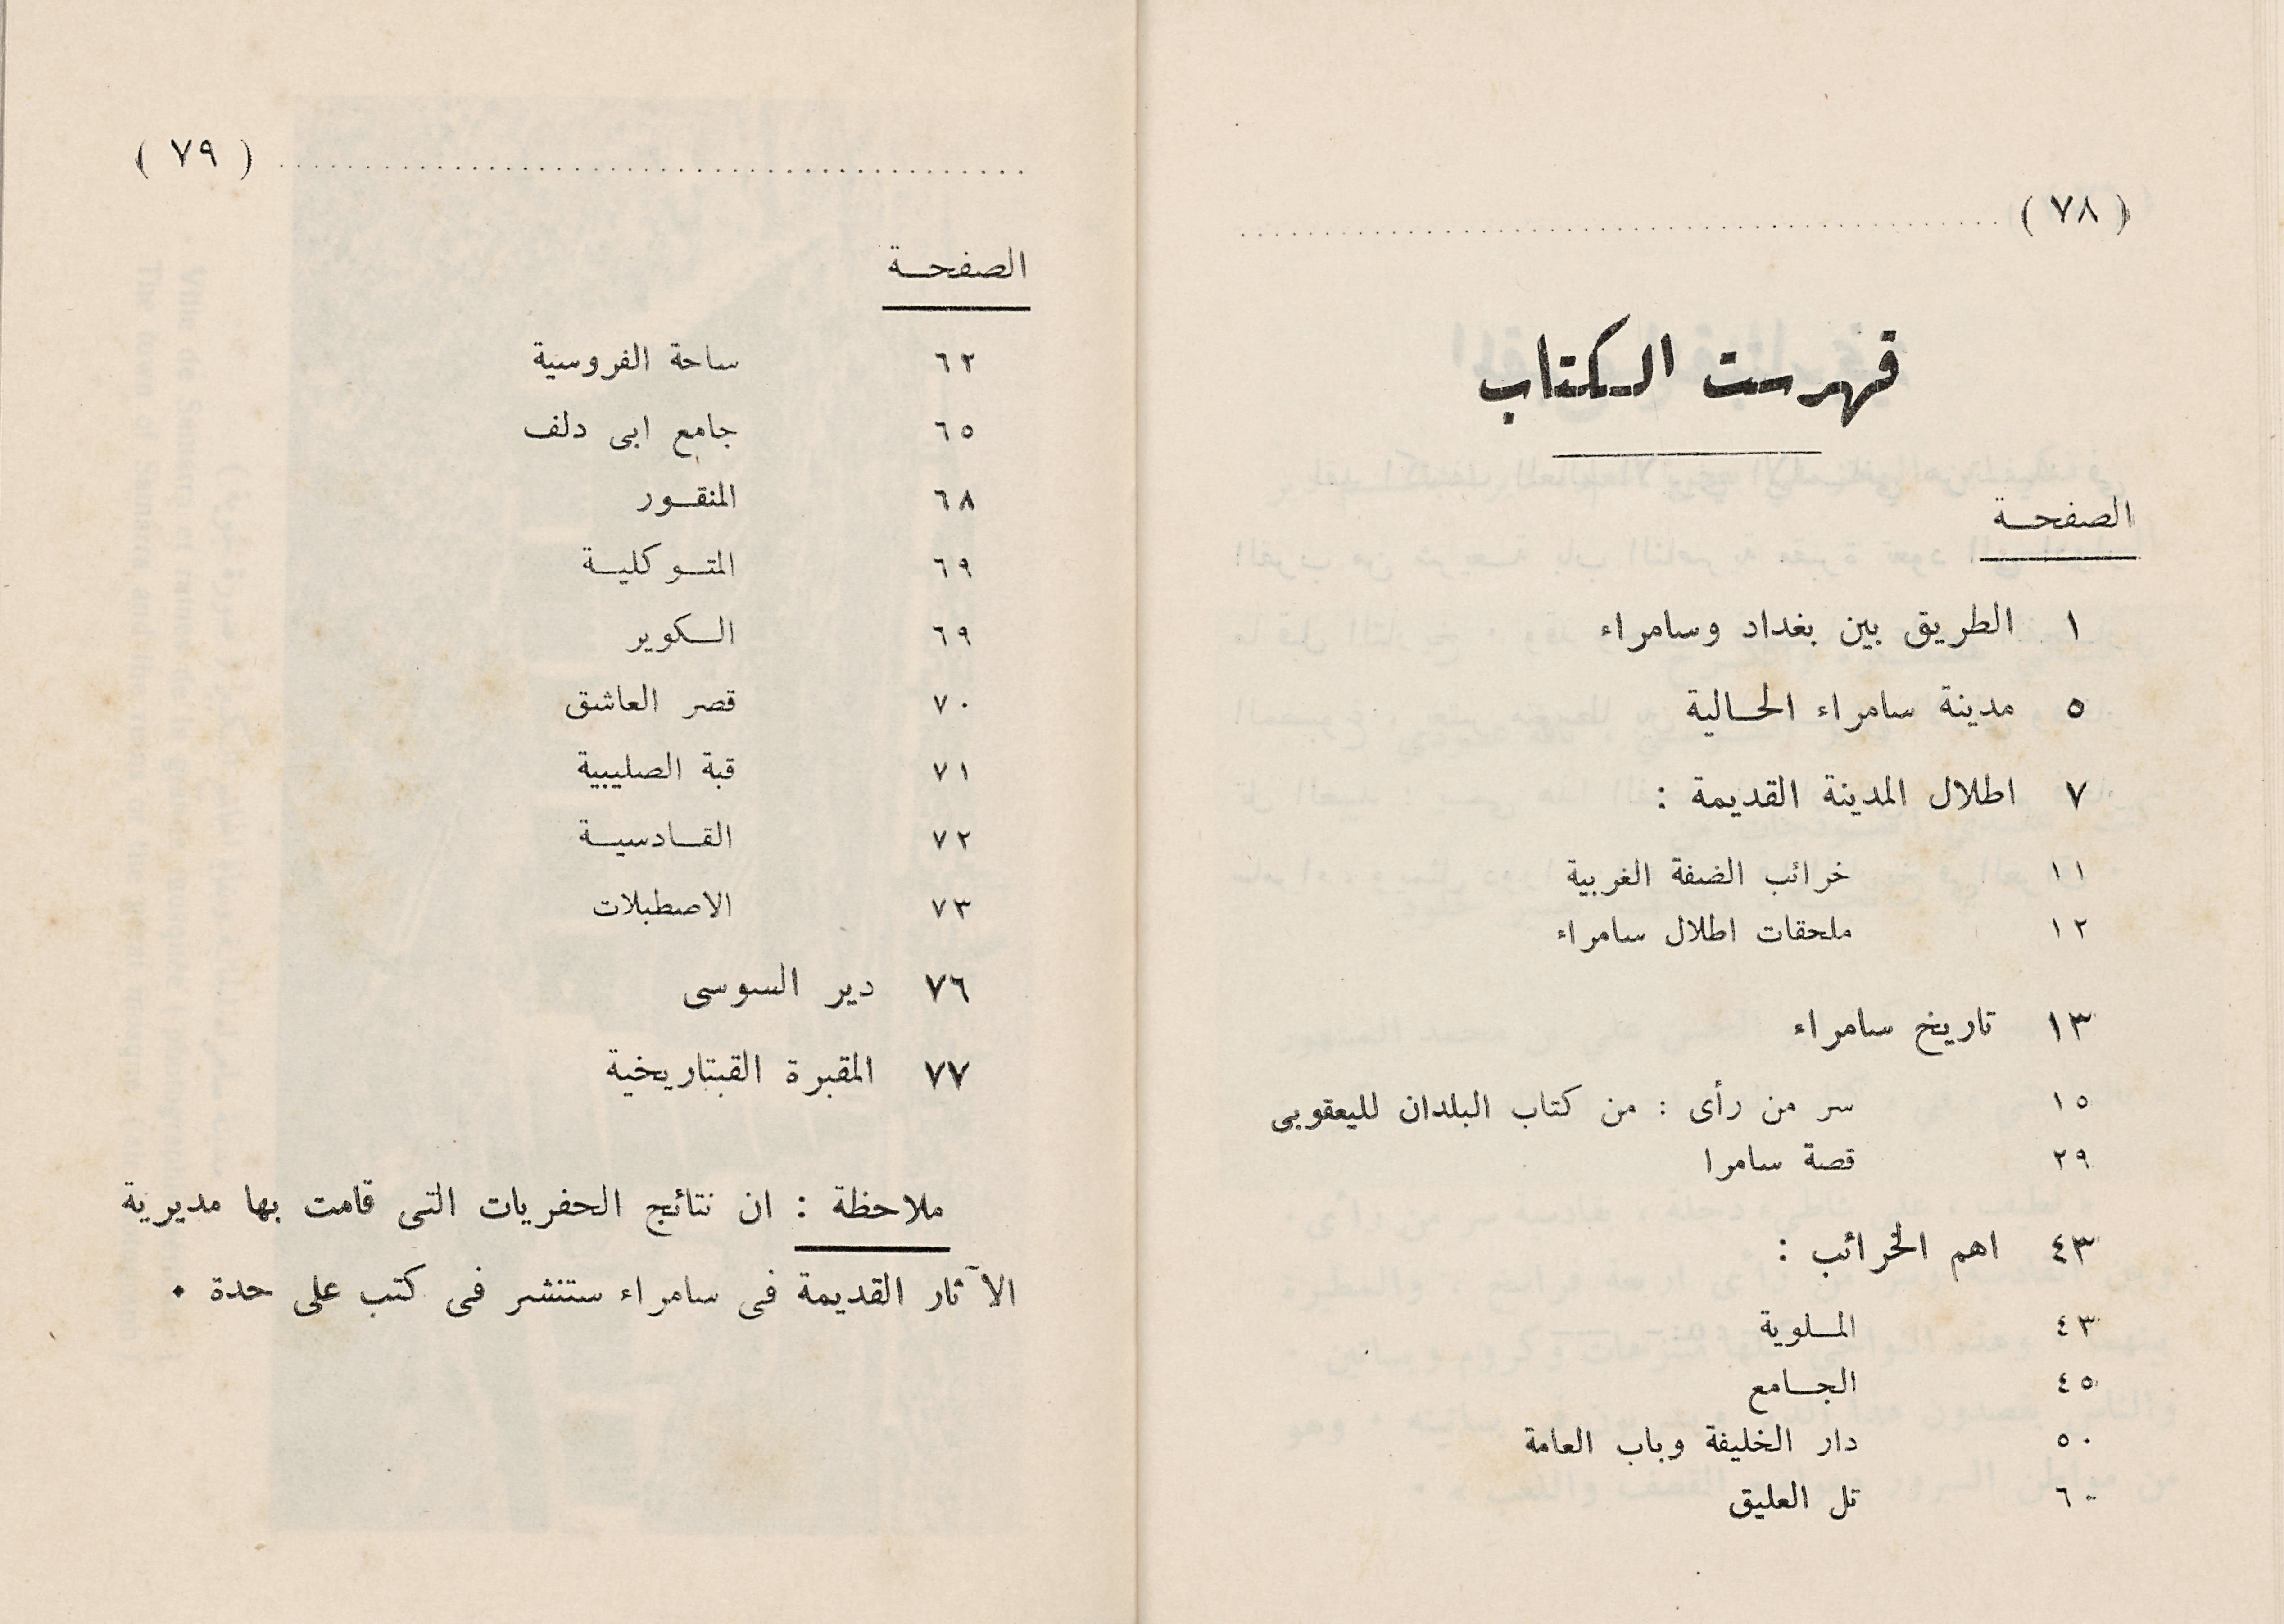 ( ٧٨ )
فهرست الكتاب
الصفحة
١ الطريق بين بغداد وسامراء
٥ مدينة سامراء الحالية
٧ اطلال المدينة القديمة :
١١ خرائب الضفة الغربية
١٢ ملحقات اطلال سامراء
١٣ تاريخ سامراء
١٥ سر من رأى : من كتاب البلدان لليعقوبى
٢٩ قصة سامرا
٤٣ اهم الخرائب :
٤٣ الملوية
٤٥ الجامع
٥٠ دار الخليفة وباب العامة
٦٠ تل العليق
( ٧٩ )
الصفحة
٦٢ ساحة الفروسية
٦٥ جامع ابى دلف
٦٨ المنقور
٦٩ المتوكلية
٦٩ الكوير
٧٠ قصر العاشق
٧١ قبة الصليبية
٧٢ القادسية
٧٣ الاصطبلات
٧٦ دير السوسى
٧٧ المقبرة القبتاريخية
ملاحظة : ان نتائج الحفريات التى قامت بها مديرية
الآثار القديمة فى سامراء ستنشر فى كتب على حدة ٠